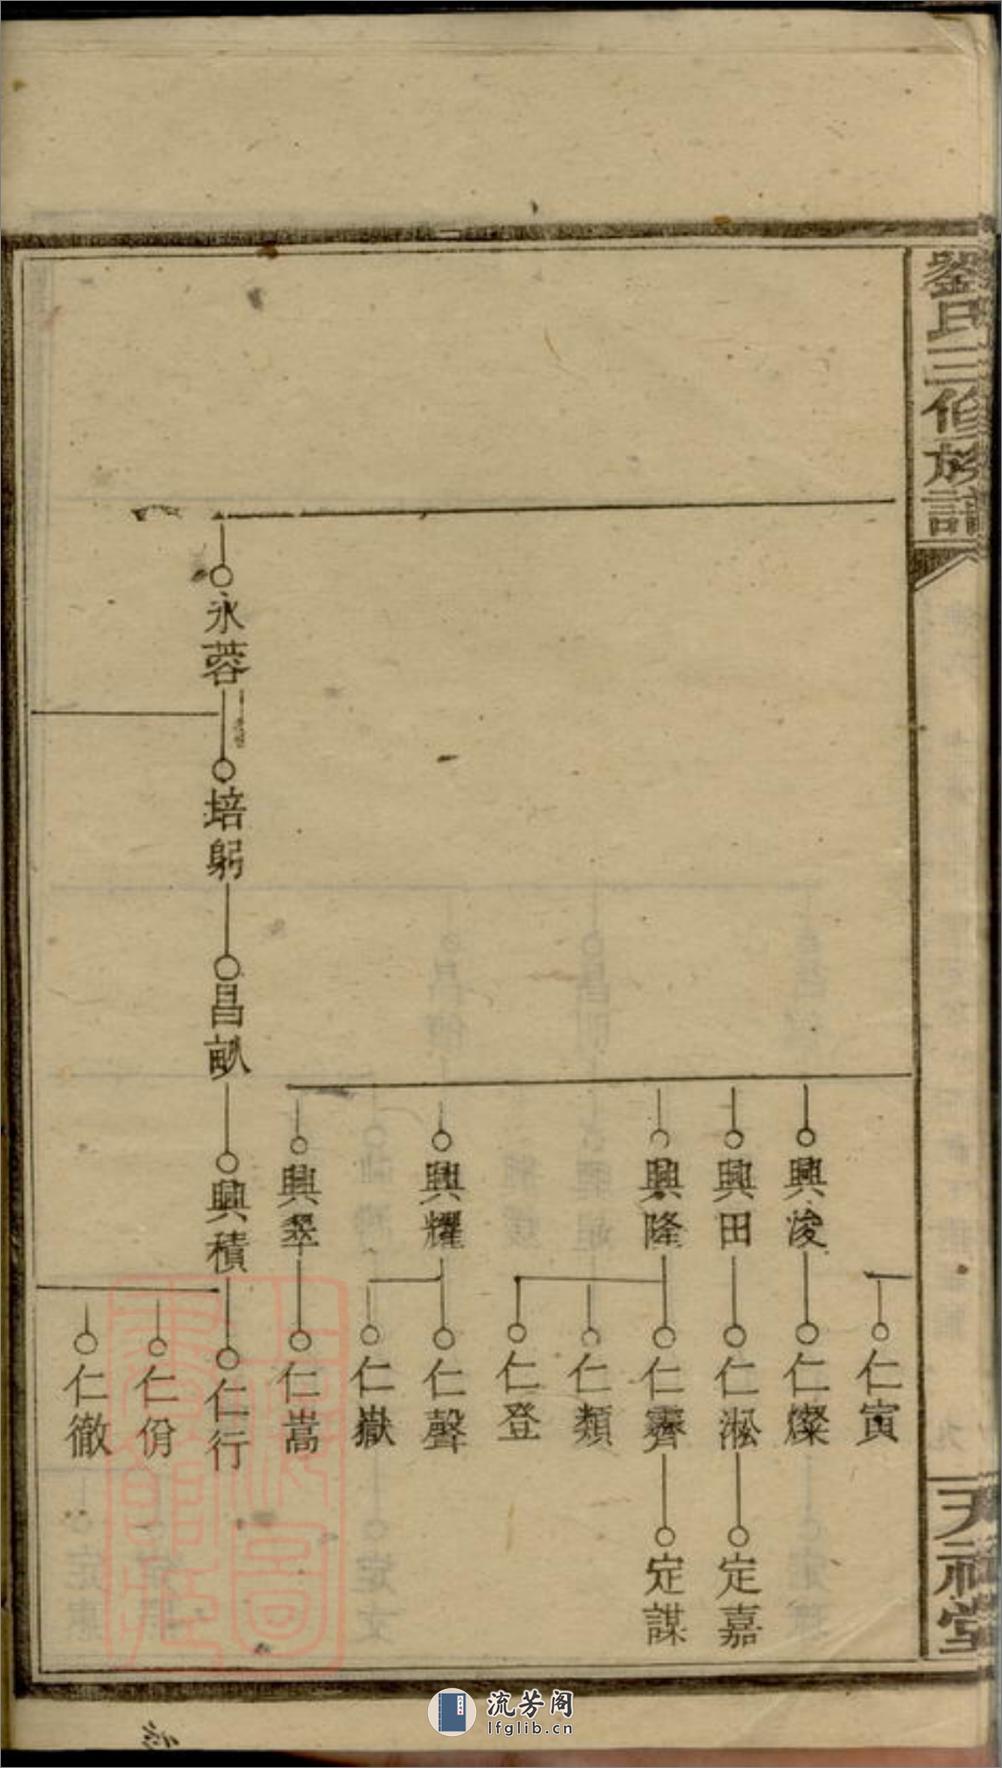 劉氏三修族譜
天祿堂
仁寅
興浚
仁燦
興田
仁淞
定嘉
興隆
仁霽
定謀
仁類
仁登
興耀
仁聲
仁嶽
興翠
仁嵩
永蓉
培躬
昌畝
興積
仁行
仁佾
仁徹
流芳阁
lfglib.cn